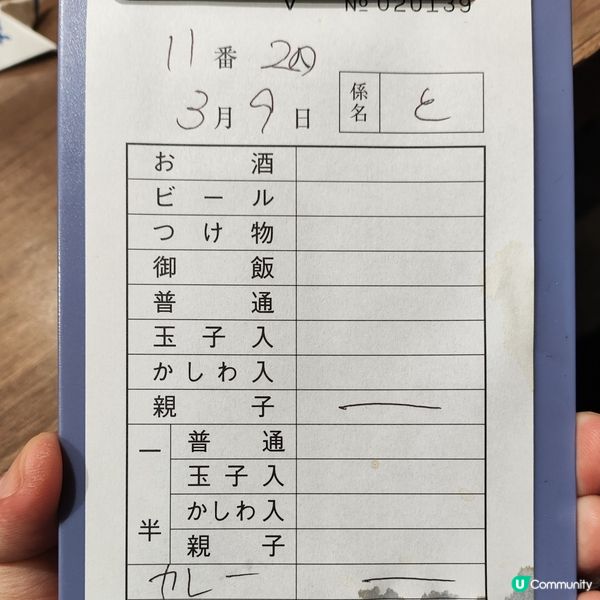 № 020139
11番 2人
3月9日
係名 と
お酒
ビール
つけ物
御飯
普通
玉子入
かしわ入
親子 一
一半
普通
玉子入
かしわ入
親子
カレー 一
U Community